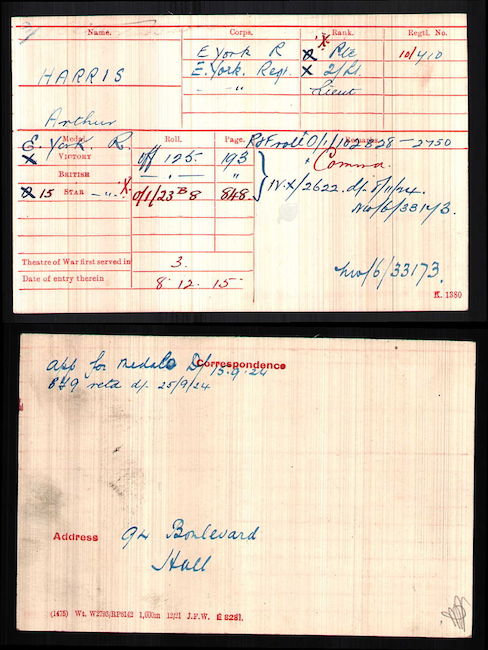 Name. Corps. Rank. Regtl. No.
HARRIS
Arthur
E York R X Pte 10/410
E. York. Regt. X 2/Lt.
-"- Lieut
Medal. Roll. Page. Remarks.
E. York. R.
X VICTORY Off 125 193
BRITISH -"- "
15 STAR -"- X 0/1/23 B 8 848.
R & F roll 0/1/102 B28 - 2750
Commn.
IV. X/2622. d/. 8/11/24.
NW/6/33173.
NW/6/33173.
Theatre of War first served in 3.
Date of entry therein 8. 12. 15
K. 1380
Correspondence
app for medals D/ 15.9.24
retd d/. 25/9/24
Address 94 Boulevard
Hull
(1475) Wt. W2793/RP8142 1,600m 12/21 J.F.W. E 8281.